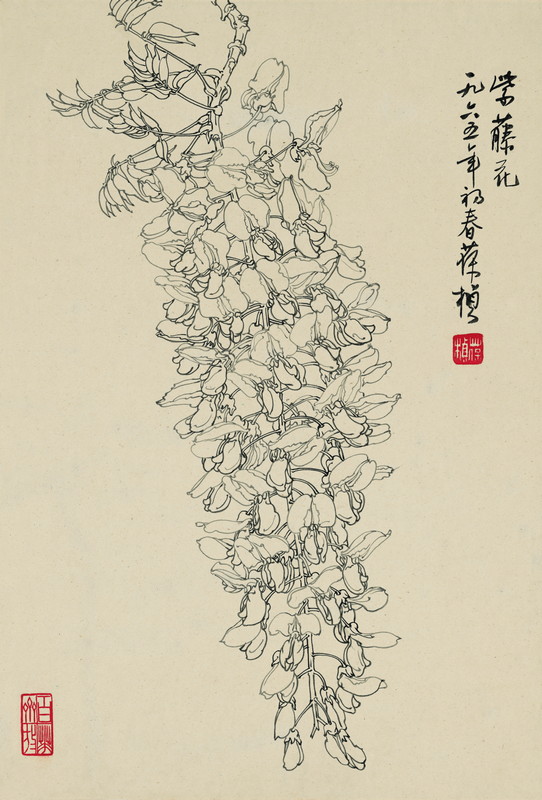 紫藤花
一九六五年初春葆楨
葆楨